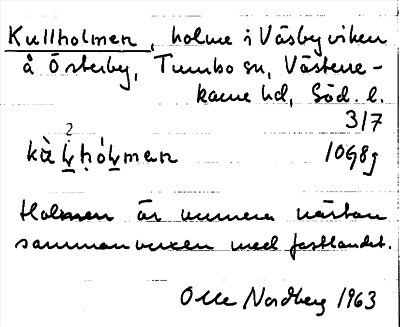 Kullholmen, holme i Väsbyviken
å Österby, Tumbo sn, Västere-
karne hd, Söd. l.
3/7
10G8g
Holmen är numera nästan
sammanvuxen med fastlandet.
Olle Nordberg 1963